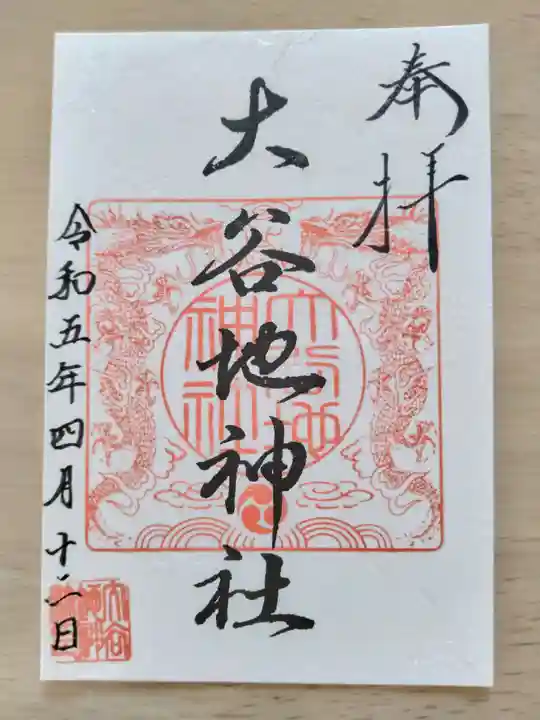 奉拝
大谷地神社
令和五年四月十二日
大谷地神社